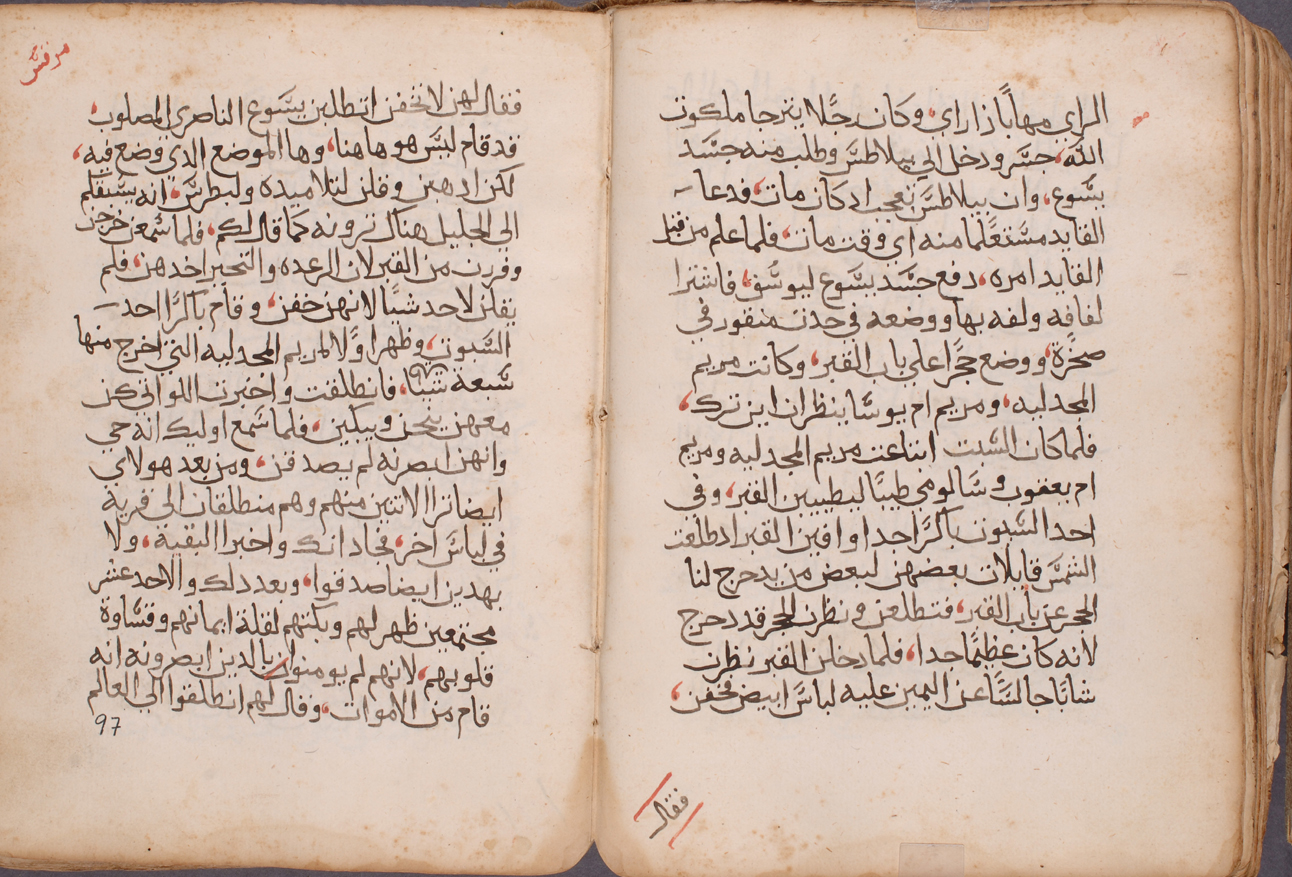 الراي مهاباً ذا راي، وكان رجًلا يترجا ملكوت
الله، جسَر ودخل الي بيلاطسَ وطلب منه جسَد
يسَوع، وان بيلاطسَ تعجب اد كان مات، فدعا
القايد مسَتعًلما منه اي وقت مات، فلما علم من قبل
القايد امره، دفع جسَد يسَوع ليوسُف، فاشترا
لفافه ولفه بها ووضعه في جدت منقور في
صخرة، ووضع حجًرا علي باب القبر، وكانت مريم
المجدليه، ومريم ام يوسَا ينظران اين ترك،
فلما كان السَبت ابتاعت مريم المجدليه ومريم
ام يعقوب وسَالومي طيبًا ليطيبين القبر، وفي
احد السَبوت باكرًا جدا وافين القبر اد طلعت
الشمسَ قايلات بعضهن لبعض من يدحرج لنا
الحجر عن باب القبر، فتطلعن ونظرن الحجر قد دحرج
لانه كان عظيمًا جدا، فلما دخلن القبر نظرن
شابًا جالسًا عن اليمين عليه لباسَ ابيض فخفن،
فقال
مرقسَ
فقال لهن لا تخفن اتطلبن يسَوع الناصري المصلوب،
قد قام ليسَ هو هاهنا، وها الموضع الدي وضع فيه،
لكن ادهبن وقلن لتلاميده ولبطرسَ، انه يسَبقكم
الي الجليل هناك ترونه كما قال لكم، فلما سَمعن خرجن
وفررن من القبر لان الرعده والتحير اخدهن، فلم
يقلن لاحد شيًا لانهن خفن، وقام باكرًا احد
السَبوت، وظهر اولًا لمريم المجدليه التي اخرج منها
سَبعة شيئا، فانطلقت واخبرت اللواتي كن
معهن ينحن ويبكين، فلما سَمع اوليك انه حي
وانهن ابصرنه لم يصدقن، ومن بعد هولاي
ايضا ترا الاتنين منهم وهم منطلقان الي قرية
في لباسَ اخر، فجا دانك واخبرا البقية، ولا
بهدين ايضا صدقوا، وبعد دلك والاحد عشر
مجتمعين ظهر لهم وبكتهم لقلة ايمانهم وقسَاوة
قلوبهم، لانهم لم يومنوا بالدين ابصرونه انه
قام من الاموات، وقال لهم انطلقوا الي العالم
97